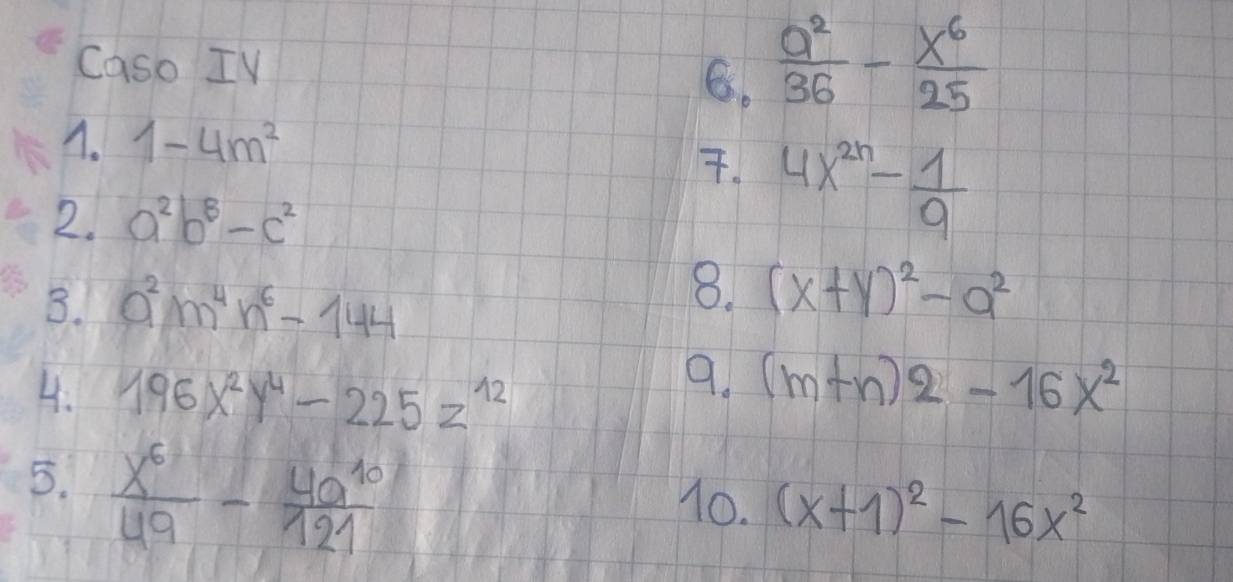 Caso IV
1. 1-4m²
2. a²b⁸-c²
3. a²m⁴n⁶-144
4. 196x²y⁴-225z¹²
5. x⁶/49 - 4a¹⁰/121
6. a²/36 - x⁶/25
7. 4x²ⁿ - 1/9
8. (x+y)²-a²
9. (m+n)2-16x²
10. (x+1)²-16x²